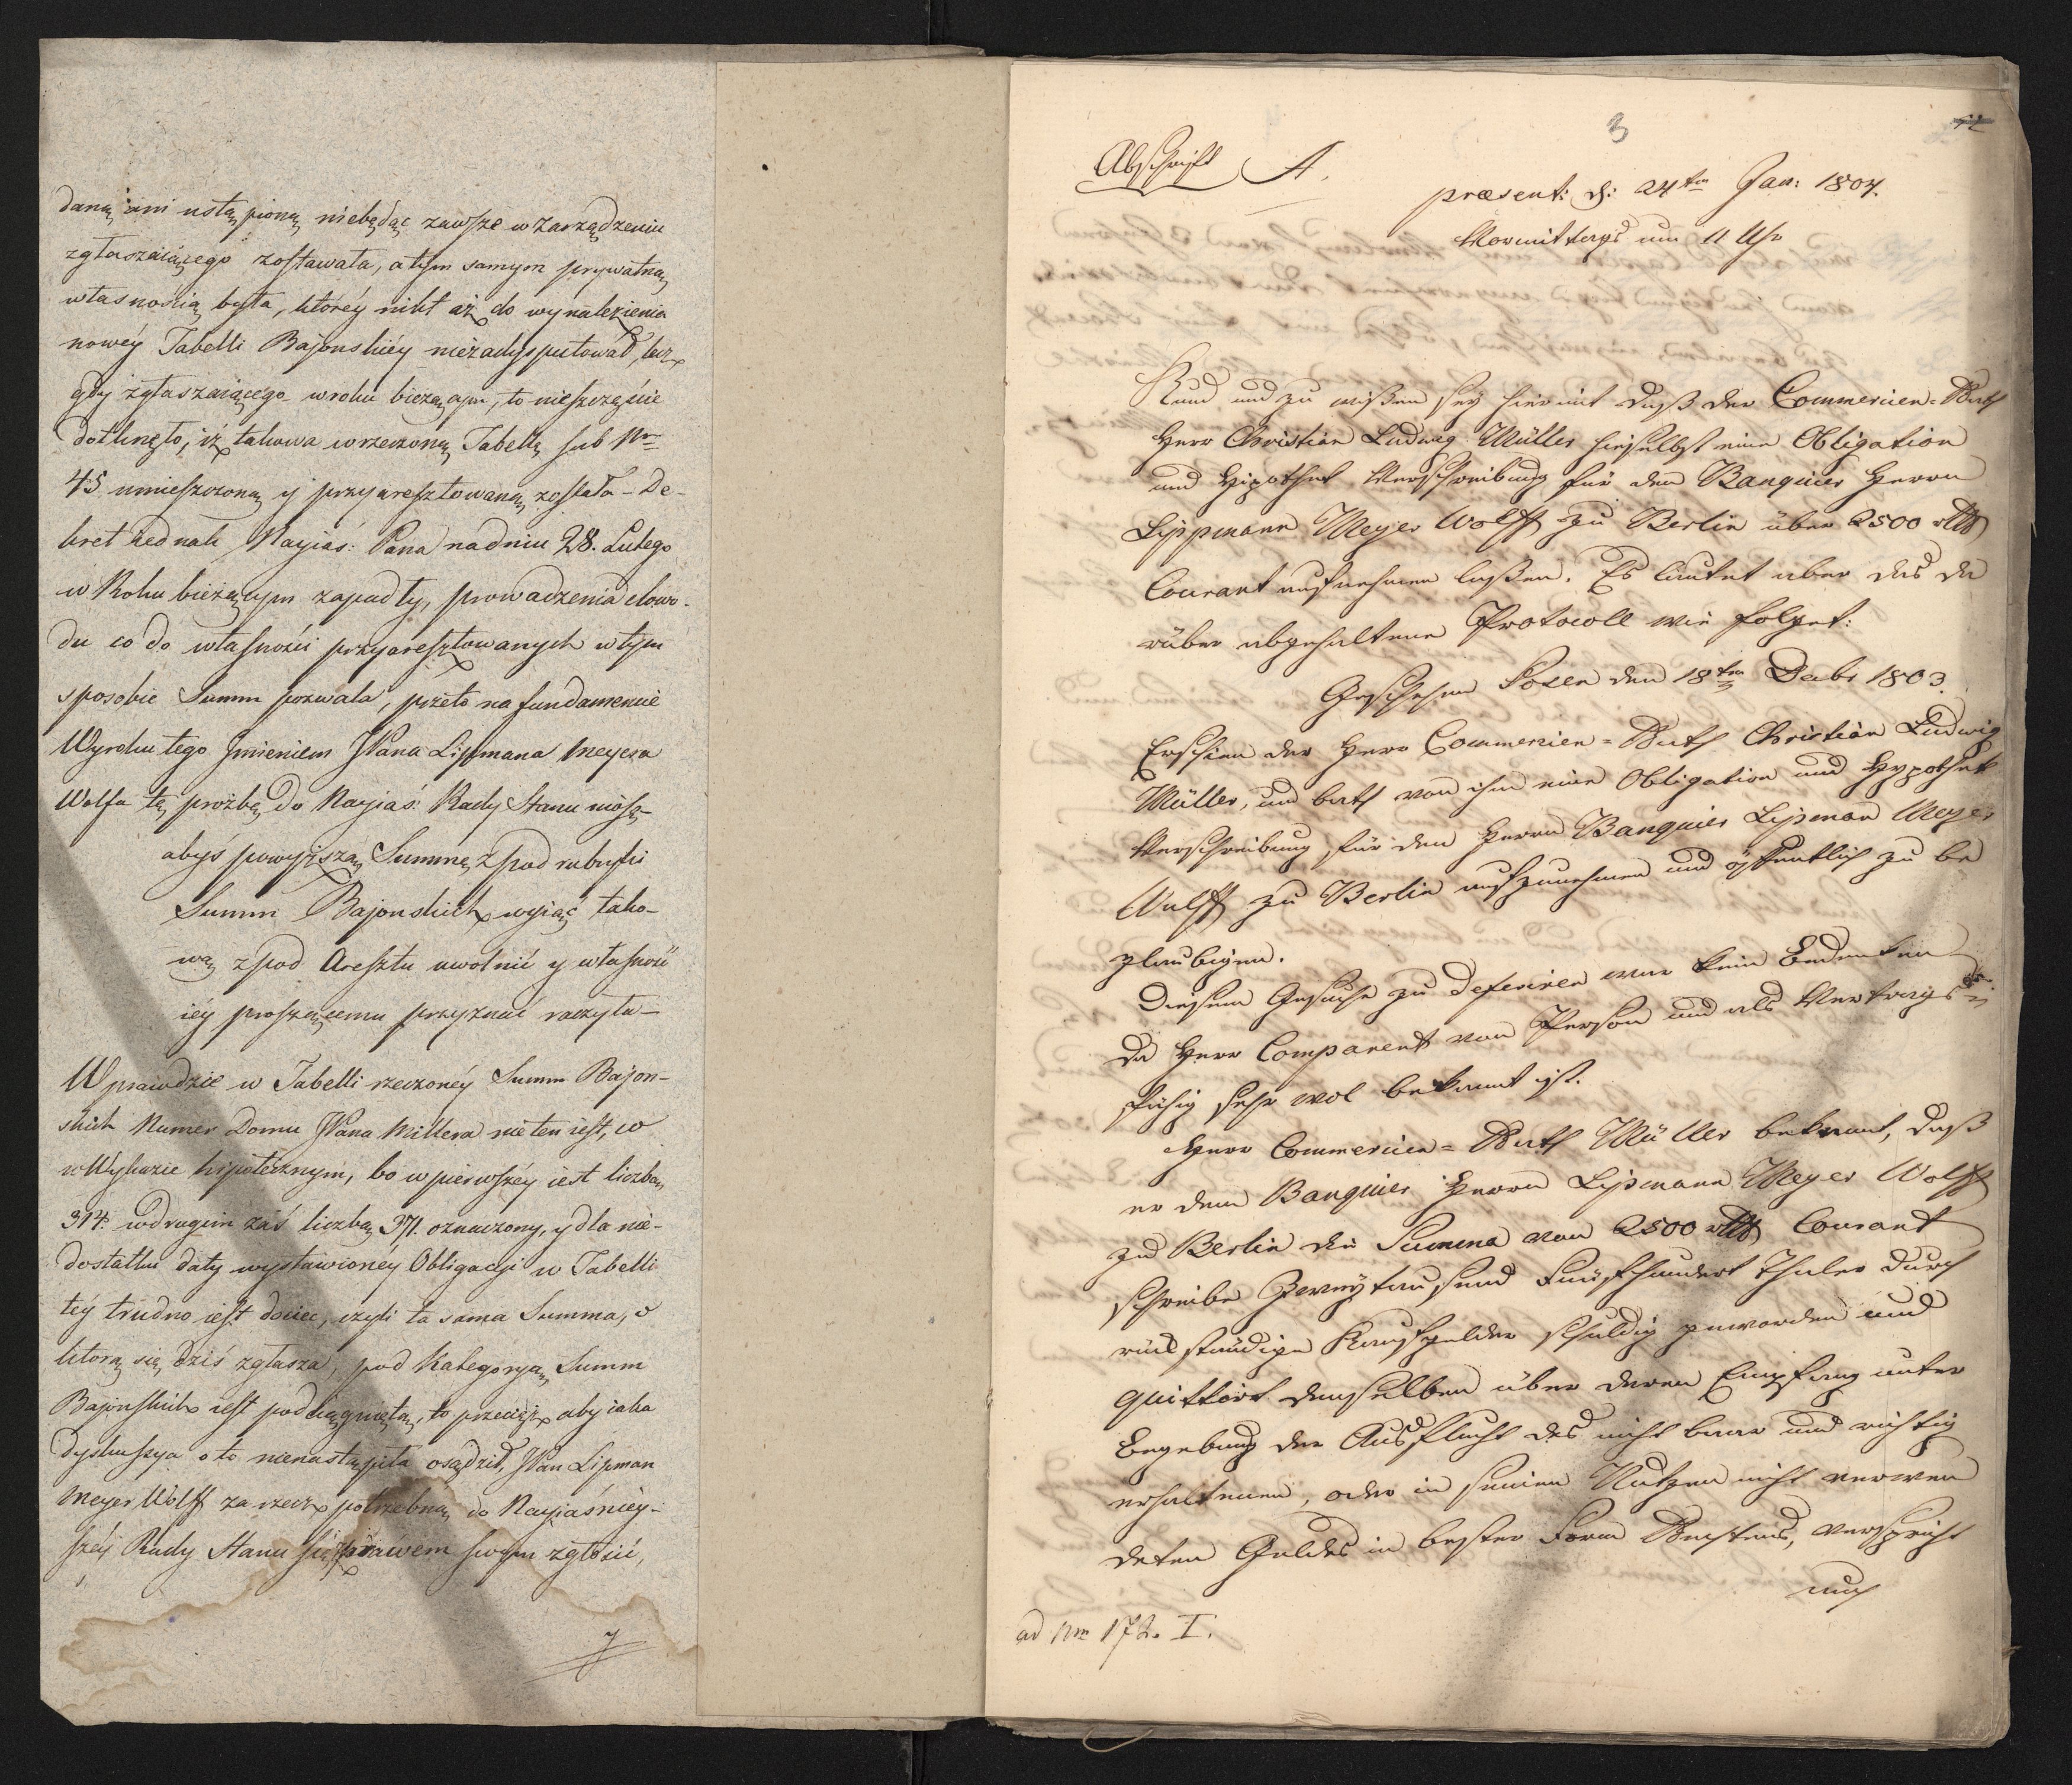 daną ani ustąpioną niebędąc zawsze w zarządzeniu
zgłaszaiącego zostawała, a tym samym prywatną
własnością była, któréy nikt aż do wynalezienia
nowéy Tabelli Bajonskiéy niezadysputował, lecz
gdy zgłaszaiącego w roku bieżącym, to nieszczęście
dotknęło, iż takowa w rzeczoną Tabellę sub Nro
45 umieszczoną y przyaresztowaną została – De-
kret iednak Nayiaś: Pana na dniu 28. Lutego
w Roku bieżącym zapadły, prowadzenia dowo-
du co do własności przyaresztowanych w tym
sposobie Summ pozwala, przeto na fundamencie
Wyroku tego Jmieniem JPana Lipmana Meyera
Wolfa tę prożbę do Nayiaś: Rady Stanu
abyś powyższą Summę z pod rubryki
Summ Bajonskich wyiąć tako-
wą z pod Aresztu uwolnić y własność
iéy proszącemu przyznać raczyła –
Wprawdzie w Tabelli rzeczonéy Summ Bajon-
skich Numer Domu JPana Millera nie ten iest, co
w Wykazie hipotecznym, bo w pierwszéy iest liczbą
314. w drugim zaś liczbą 371. oznaczony, y dla nie-
dostatku daty wystawionéy Obligacyi w Tabelli
téy trudno iest dociec, czyli ta sama Summa, o
którą się dziś zgłasza, pod Kategoryą Summ
Bajonskich iest podciągniętą, to przecież aby iaka
dyskussya o to nienastąpiła osądził, JPan Lipman
Meyer Wolff za rzecz potrzebną do Nayiaśniéy-
széy Rady Stanu się z prawem swym zgłosić,
7
3
Abschrift A.
præsent: d: 24ten Jan: 1804.
Vormittags um 11 Uhr
Kund und zu wißen sey hiermit daß der Commercien-Rath
Herr Christian Ludwig Müller hieselbst eine Obligation
und Hipothek Verschreibung für den Banquier Herrn
Lippmann Meyer Wolff zu Berlin über 2500 rtl
Courant aufnehmen laßen. Es lautet aber das da
rüber abgehaltene Protocoll wie folget:
Geschehen Posen den 18ten Decbr 1803.
Erschien der Herr Commercien-Rath Christian Ludwig
Müller, und bath von ihm eine Obligation und Hypothek
Verschreibung für den Herrn Banquier Lipman Meyer
Wulff zu Berlin aufzunehmen und öffentlich zu be
glaubigen.
Diesem Gesuche zu deferiren war kein Bedenken
da Herr Comparent von Person und als Vertrags-
fähig sehr wol bekannt ist.
Herr Commercien-Rath Müller bekennt, daß
er dem Banquier Herrn Lipmann Meyer Wolff
zu Berlin die Summa von 2500 rtl Courant
schreibe Zweytausend Fünfhundert Thaler durch
rückständige Kaufgelder schuldig geworden und
quittirt denselben über deren Empfang unter
Begebung der Ausflucht des nicht baar und richtig
erhaltenen, oder in seinen Nutzen nicht verwen
deten Geldes in bester Form Rechtens, verspricht
auch
ad Nro 172. I.